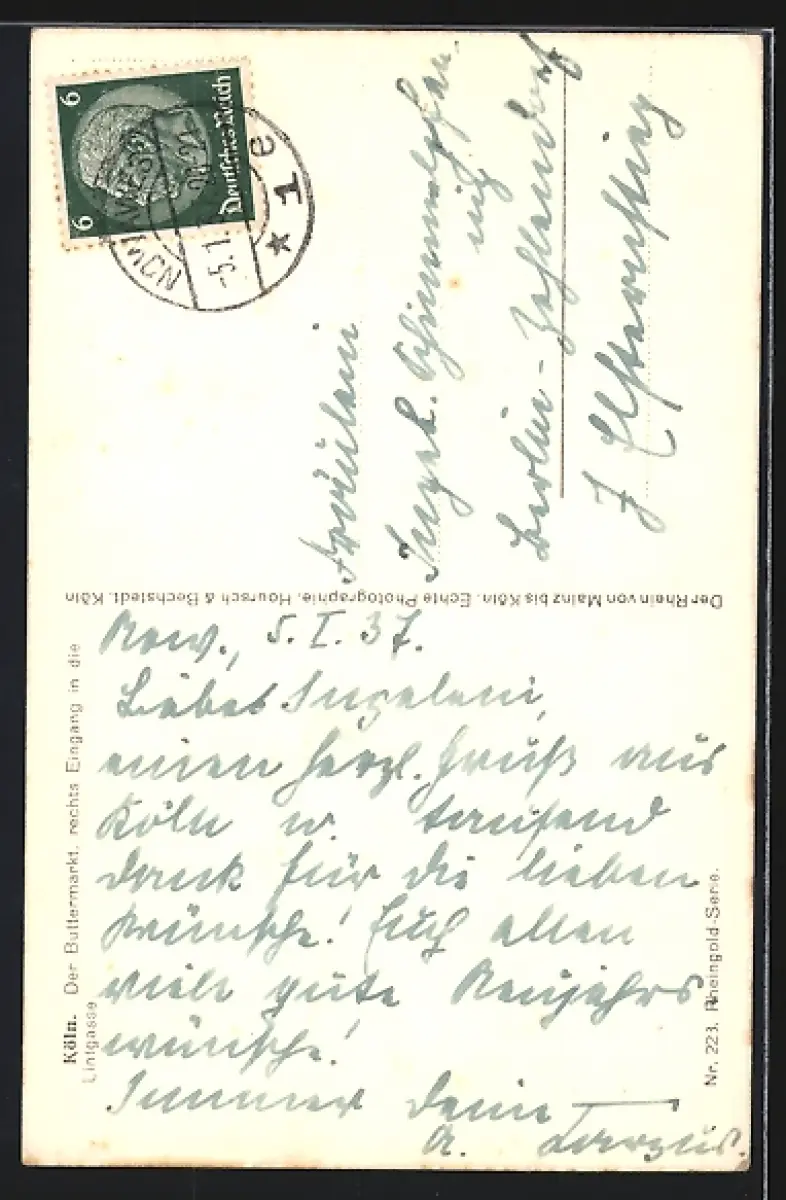 6
6
Deutsches Reich
-5.1.
* 1 e
Fräulein
Berlin-Zehlendorf
7 Elsterstieg
Der Rhein von Mainz bis Köln. Echte Photographie, Hoursch & Bechstedt, Köln
Köln. Der Buttermarkt, rechts Eingang in die
Lintgasse
5. I. 37.
Liebes Ingelein,
einen herzl. Gruß aus
Köln u. tausend
Dank für die lieben
Wünsche! Euch allen
viele gute Neujahrs
wünsche!
Immer Deine
Nr. 223. Rheingold-Serie.